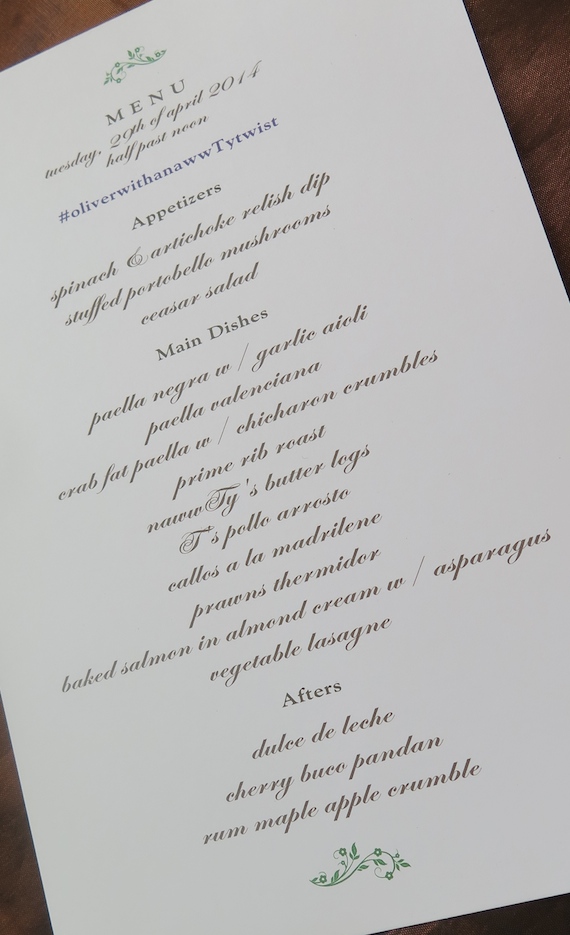 MENU
tuesday, 29th of april 2014
half past noon
#oliverwithanawwTytwist
Appetizers
spinach & artichoke relish dip
stuffed portobello mushrooms
ceasar salad
Main Dishes
paella negra w / garlic aioli
paella valenciana
crab fat paella w / chicharon crumbles
prime rib roast
nawwTy's butter logs
T's pollo arrosto
callos a la madrilene
prawns thermidor
baked salmon in almond cream w / asparagus
vegetable lasagne
Afters
dulce de leche
cherry buco pandan
rum maple apple crumble